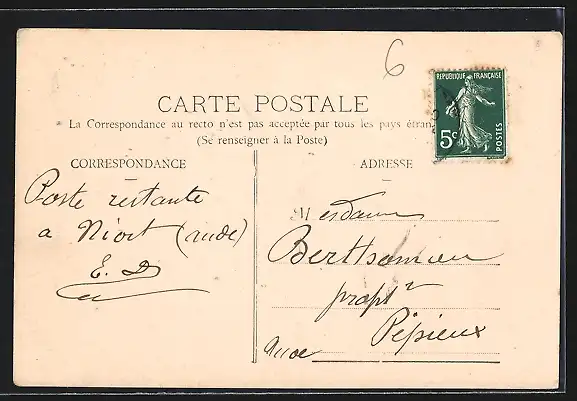 6
CARTE POSTALE
* La Correspondance au recto n'est pas acceptée par tous les pays étran
(Se renseigner à la Poste)
RÉPUBLIQUE FRANÇAISE
5c
POSTES
CORRESPONDANCE
Poste restante
a Niort (aude)
E. D
ADRESSE
Mesdame
Berthomieu
propt re
Pépieux
Aude